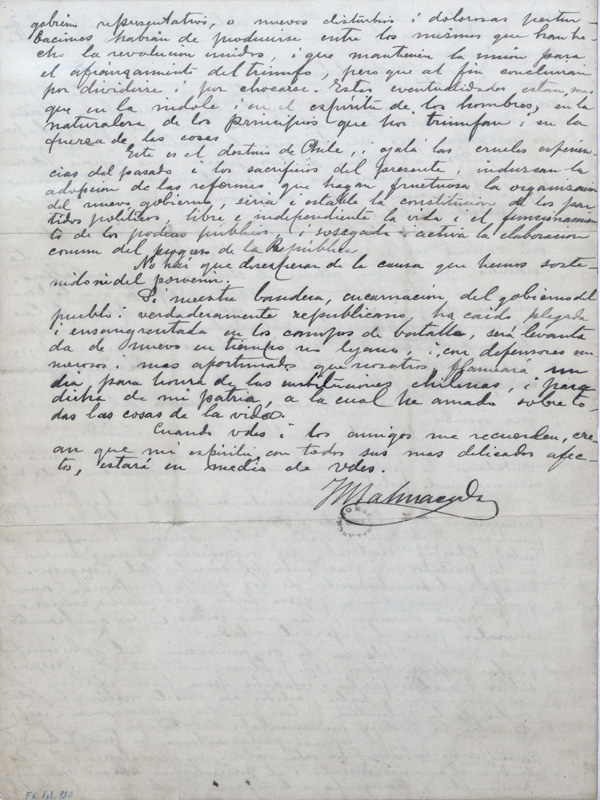 gobierno representativo, o nuevos disturbios i dolorosas pertur-
baciones habrán de producirse entre los mismos que han he-
cho la revolución unidos, i que mantienen la unión para
el afianzamiento del triunfo, pero que al fin concluirán
por dividirse i por chocarse. Estas eventualidades están, mas
que en la indole i en el espíritu de los hombres, en la
naturaleza de los principios que hoi triunfan i en la
fuerza de las cosas.
Este es el destino de Chile, i ojalá las crueles esperien-
cias del pasado i los sacrificios del presente, induzcan la
adopcion de las reformas que hagan fructuosa la organizacion
del nuevo gobierno, seria i estable la constitucion de los par-
tidos politicos, libre e independiente la vida i el funcionamien-
to de los poderes publicos, i sosegada i activa la elaboracion
comun del progreso de la República.
No hai que desesperar de la causa que hemos soste-
nido ni del porvenir.
Si nuestra bandera, encarnacion del gobierno del
pueblo i verdaderamente republicano, ha caido plegada
i ensangrentada en los campos de batalla, será levanta
da de nuevo en tiempo no lejano, i, con defensores nu
merosos i mas afortunados que nosotros, flameará un
dia para honra de las instituciones chilenas, i para
dicha de mi patria, a la cual he amado sobre to-
das las cosas de la vida.
Cuando vdes i los amigos me recuerden, cre-
an que mi espiritu, con todos sus mas delicados afec-
tos, estará en medio de vdes.
JM Balmaceda